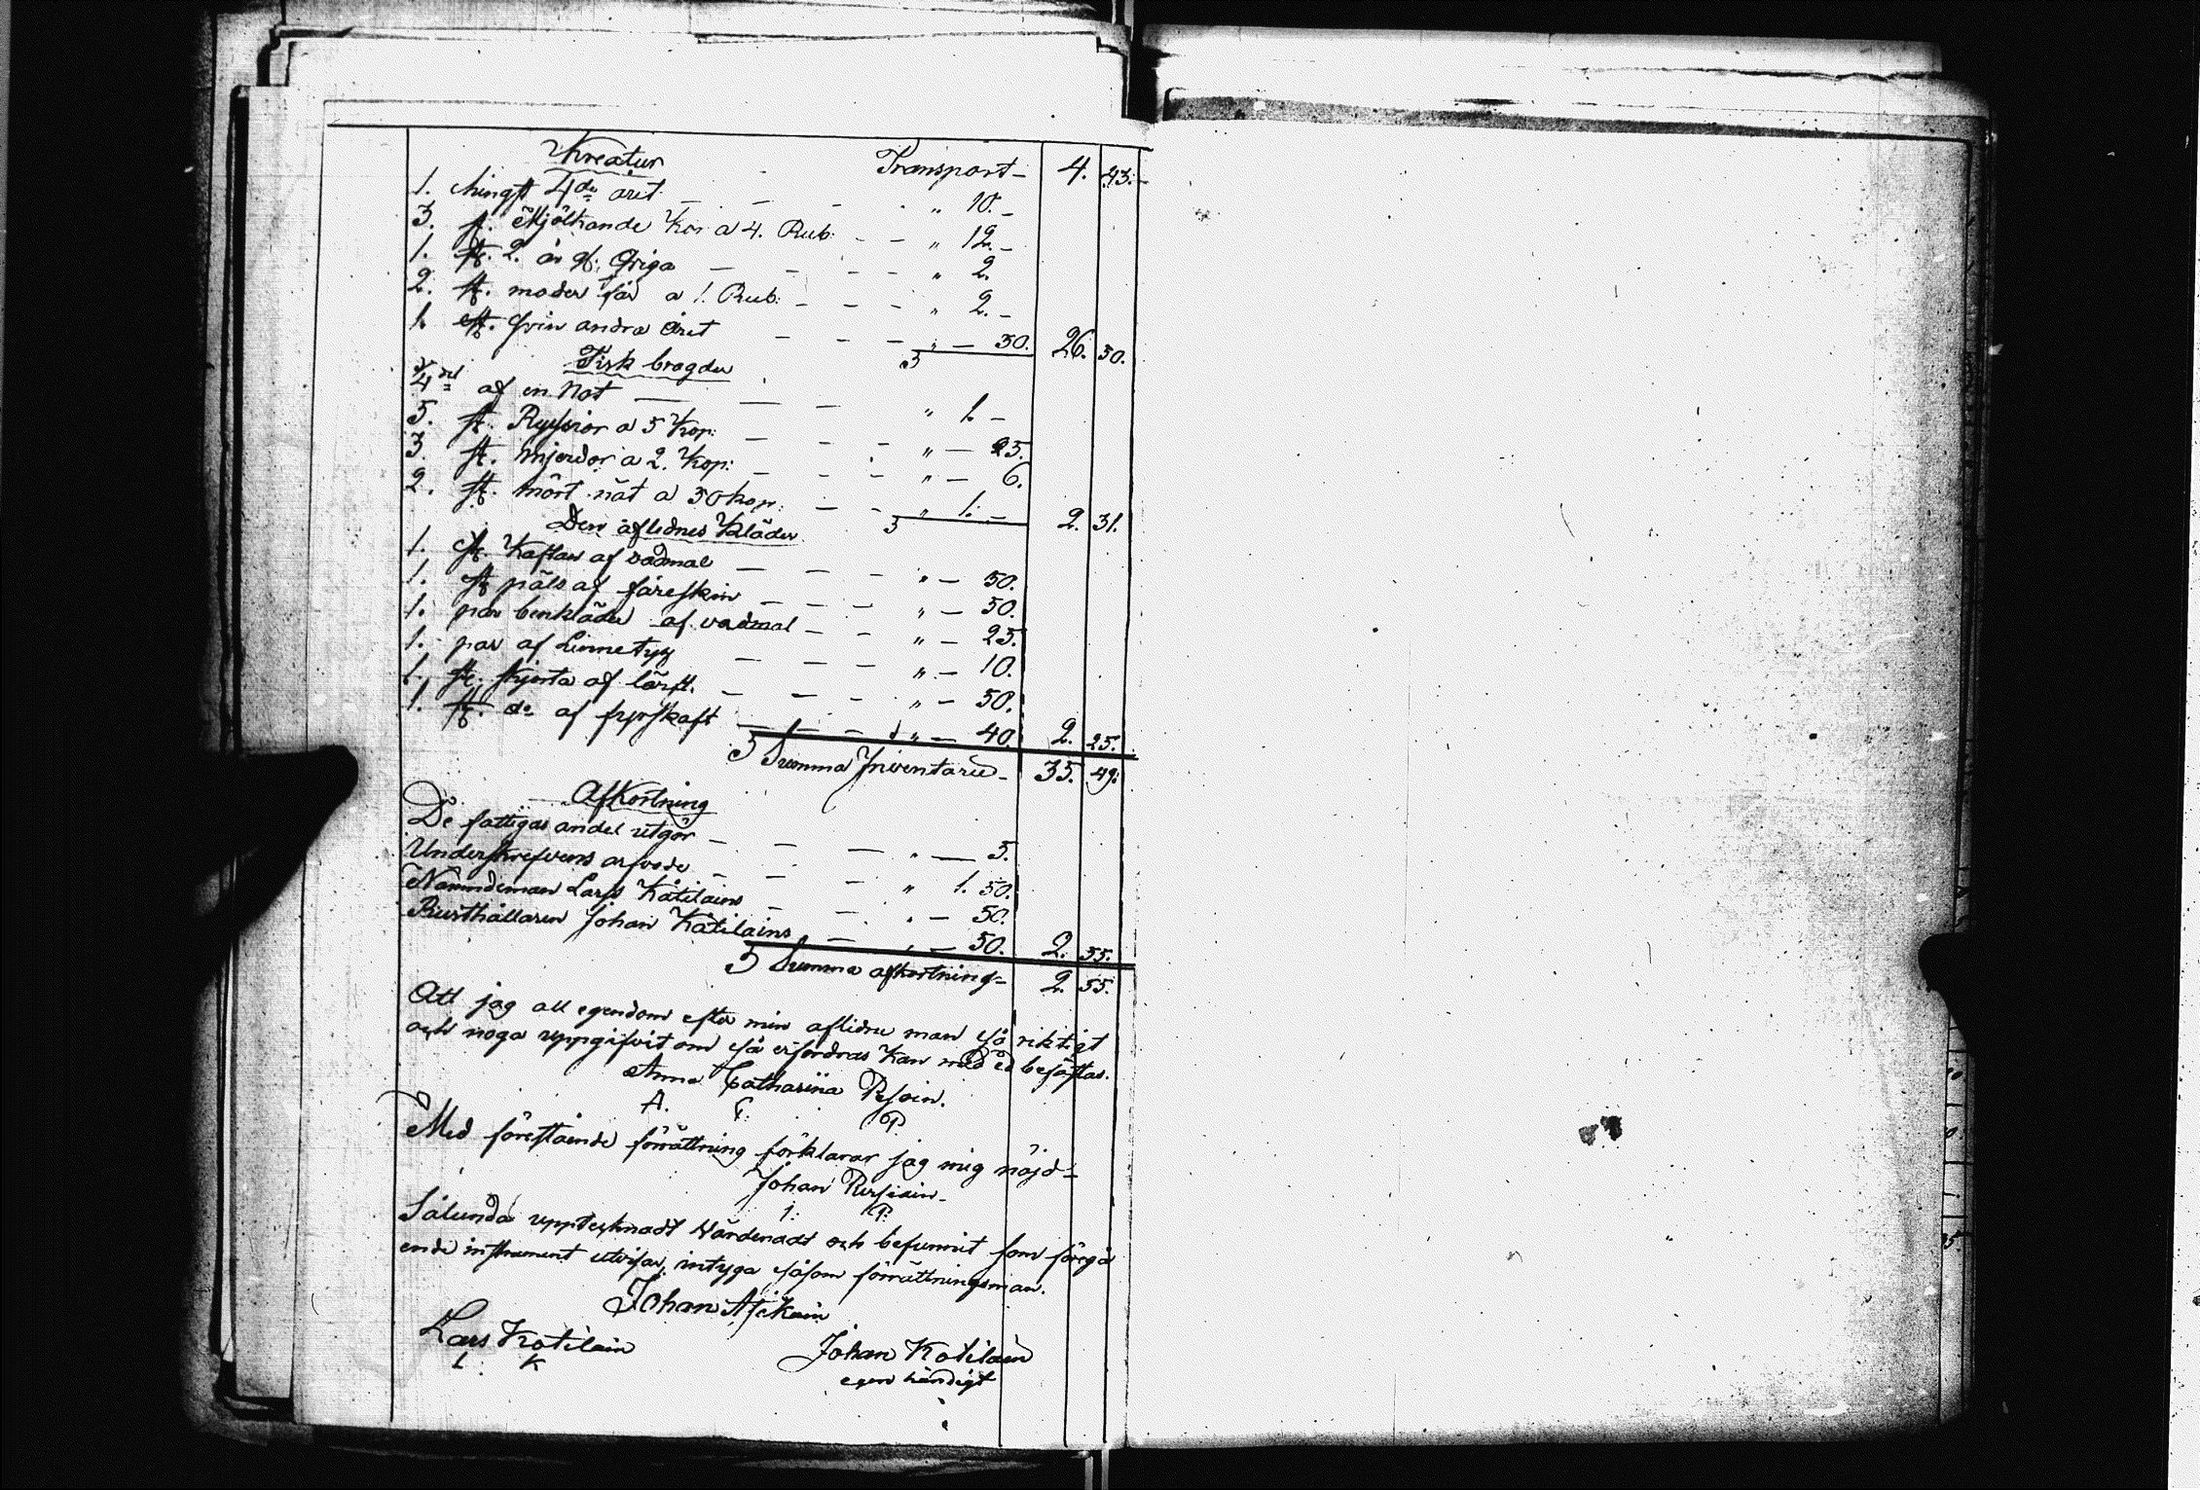 Kreatur Transport – 4. 43.
1. hingst 4de året – – – „ 10. –
3. st. Mjölkande Kor a 4. Rub: – – „ 12. –
1. st. 2. år gl: Qviga – – – – „ 2.
2. st. moder får a 1. Rub: – – – „ 2. –
1. st. svin andra året – – – „ – 30. 26. 30.
Fisk bragder
¼ del af en Not – – – „ 1. –
5. st. Ryssior a 5 Kop: – – – „ – 25.
3. st. mjerdor a 2. Kop: – – – „ – 6.
2. st. mört nät a 50 kop: – – „ 1. – 2. 31.
Den aflednes Kläder
1. st. Kaftan af vadmal – – – „ – 50.
1. st päls af fåreskin – – – „ – 50.
1. par benkläder af vadmal – – „ – 25.
1. par af Linnetyg – – – „ – 10.
1. st. skjorta af lärft. – – – „ – 50.
1. st. do af fyrskaft – – – „ – 40. 2. 25.
Summa Inventarii – 35. 49.
Afkortning
De fattigas andel utgör – – – „ – 5.
Underskrefvens arfvode – – – „ 1. 50.
Nämndeman Lars Kåtilains – – „ – 50.
Rusthållaren Johan Kåtilains – „ – 50. 2. 55.
Summa afkortning – 2. 55.
Att jag all egendom efter min aflidne man så riktigt
och noga uppgifvit om så erfordras kan med ed besäftas.
Anna Catharina Pesoin.
A. C. P
Med förestående förrättning förklarar jag mig nöjd –
Johan
J: P:
Sålunda uppteknadt värderadt och befunnit som föregå
ende instrument utvisar, intyga såsom förrättningsman.
Johan
Lars Kotilain
L K
Johan Kotilain
egen händigt